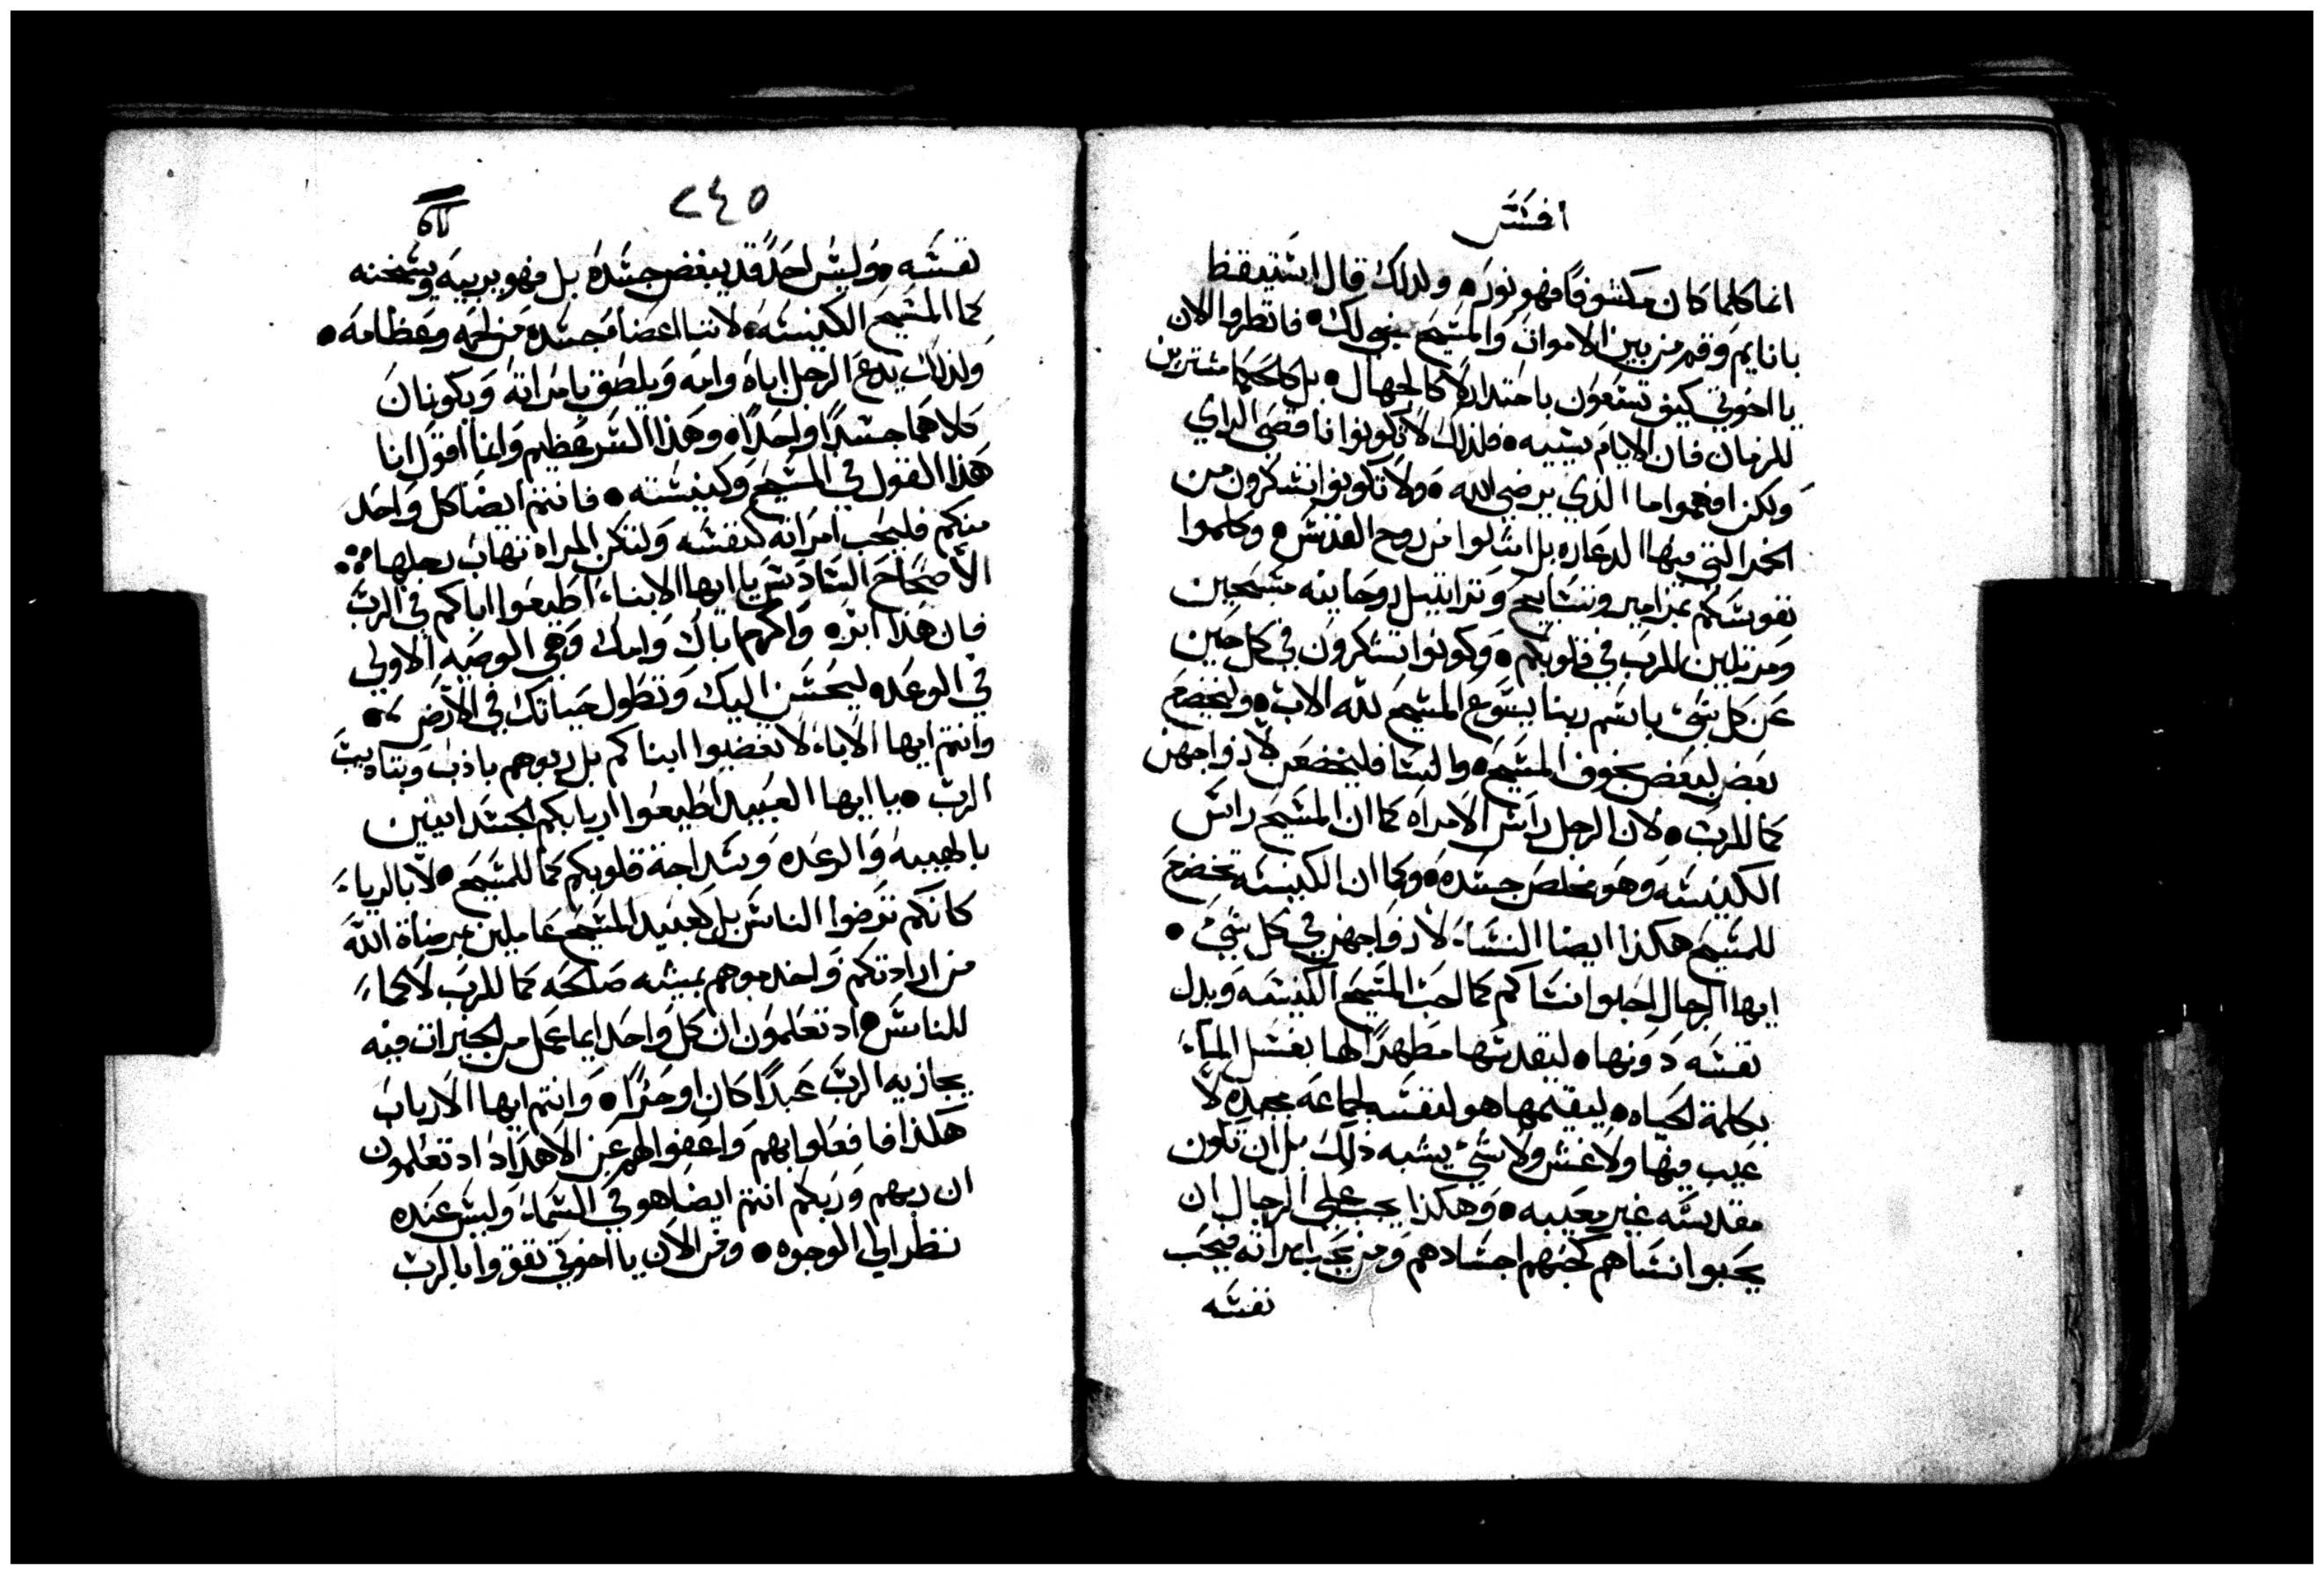 افسس
انما كلما كان مكشوفاً فهو نور، ولذلك قال استيقظ
يا نايم وقم من بين الاموات والمسيح يضي لك، فانظروا الان
يا اخوتي كيف تسعون باحتدار لا كالجهال، بل كالحكما مشترين
للزمان فان الايام شيبه، فلذلك لا تكونوا ناقصى الراي
ولكن افهموا ما الذي يرضى الله، ولا تكونوا تشكرون من
الخمر التي فيها الدعاره بل امتلوا من روح القدس، وكلموا
نفوسكم بمزامير وتسابيح وتراتيل روحانيه مسبحين
ومرتلين للرب في قلوبكم، وكونوا تشكرون في كل حين
عن كل شي باسم ربنا يسوع المسيح لله الاب، وليخضع
بعض لبعض بخوف المسيح، والنسا فليخضعن لازواجهن
كما للرب، لان الرجل راس الامراه كما ان المسيح راس
الكنيسه وهو مخلص جسده، وكما ان الكنيسه تخضع
للمسيح هكذا ايضا النساء لازواجهن في كل شي،
ايها الرجال احبوا نساكم كما احب المسيح الكنيسه وبدل
نفسه دونها، ليقدسها مطهراً لها بغسل الماء
بكلمة الحياه، ليقيمها هو لنفسه جماعه مجمده لا
عيب فيها ولا غش ولا شي يشبه ذلك بل ان تكون
مقدسه غير معيبه، وهكذا يجب على الرجال ان
يحبوا نساهم كحبهم اجسادهم ومن يحب امراته فيحب
نفسه
٢٤٥
نفسه، وليس احدً قد يبغض جسده بل فهو يربيه ويسخنه
كما المسيح الكنيسه، لاننا اعضا جسده من لحمه وعظامه،
ولذلك يدع الرجل اباه وامه ويلصق بامراته ويكونان
كلاهما جسداً واحداً، وهذا السر عظيم وانما اقول انا
هذا القول في المسيح وكنيسته، فانتم ايضا كل واحد
منكم فليحب امراته كنفسه ولتكن المراه تهاب رجلها
الاصحاح السادس يا ايها الابناء اطيعوا اباكم في الرب
فان هذا ابره واكرم اباك وامك وهي الوصيه الاولي
في الوعده ليحسن اليك وتطول حياتك في الارض،
وانتم ايها الاباء لا تغضبوا ابناكم بل ربوهم باذب وبتاديب
الرب، يا ايها العبيد اطيعوا اربابكم الجسدانيين
بالهيبه والرعده وسداجة قلوبكم كما للمسيح، لا بالرياء
كانكم ترضوا الناس بل كعبيد المسيح عاملين مرضاة الله
من ارادتكم واخدموهم بمشيه صالحه كما للرب لا كما
للناس، اد تعلمون ان كل واحد ايما عمل من الخيرات فيه
يجازيه الرب عبداً كان او حراً، وانتم ايها الارباب
هكذا فافعلوا بهم واعفوا لهم عن الاهدا اد تعلمون
ان ربهم وربكم انتم ايضا هو في السماء وليس عنده
نظر الي الوجوه، ومن الان يا اخوتي تقووا بالرب